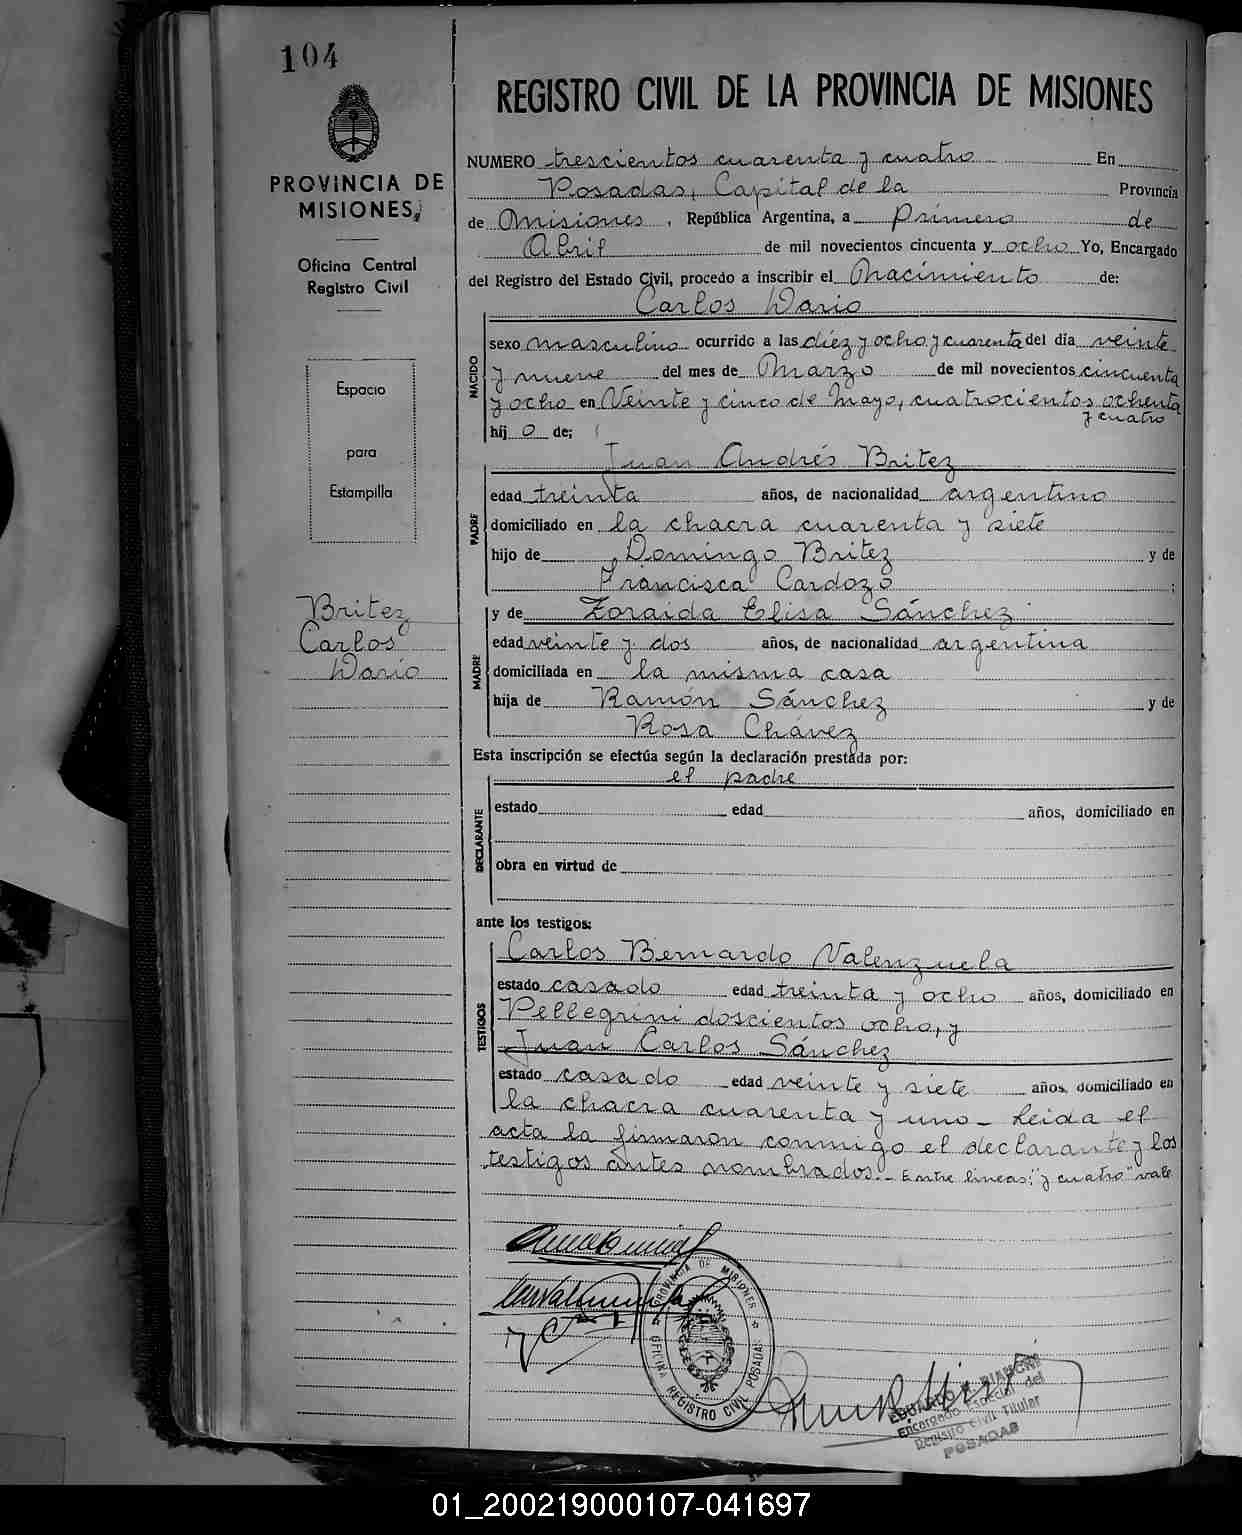 104
REGISTRO CIVIL DE LA PROVINCIA DE MISIONES
PROVINCIA DE
MISIONES
Oficina Central
Registro Civil
Espacio
para
Estampilla
Britez
Carlos
Dario
NUMERO trescientos cuarenta y cuatro En
Posadas, Capital de la Provincia
de Misiones, República Argentina, a Primero de
Abril de mil novecientos cincuenta y ocho Yo, Encargado
del Registro del Estado Civil, procedo a inscribir el Nacimiento de:
Carlos Dario
NACIDO
sexo masculino ocurrido a las diez y ocho y cuarenta del día veinte
y nueve del mes de Marzo de mil novecientos cincuenta
y ocho en Veinte y cinco de Mayo, cuatrocientos ochenta
y cuatro
hij o de;
Juan Andrés Britez
PADRE
edad treinta años, de nacionalidad argentino
domiciliado en la chacra cuarenta y siete
hijo de Domingo Britez y de
Francisca Cardozo ;
MADRE
y de Zoraida Elisa Sánchez
edad veinte y dos años, de nacionalidad argentina
domiciliada en la misma casa
hija de Ramón Sánchez y de
Rosa Chávez
Esta inscripción se efectúa según la declaración prestada por:
el padre
DECLARANTE
estado edad años, domiciliado en
obra en virtud de
ante los testigos:
TESTIGOS
Carlos Bernardo Valenzuela
estado casado edad treinta y ocho años, domiciliado en
Pellegrini doscientos ocho, y
Juan Carlos Sánchez
estado casado edad veinte y siete años, domiciliado en
la chacra cuarenta y uno - Leida el
acta la firmaron conmigo el declarante y los
testigos antes nombrados.- Entre lineas: "y cuatro" vale
PROVINCIA DE MISIONES
OFICINA REGISTRO CIVIL POSADAS
Encargado Especial del
Registro Civil Titular
POSADAS
01_200219000107-041697